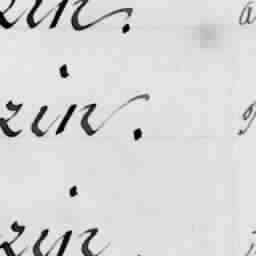 zin.
zin.
zin.